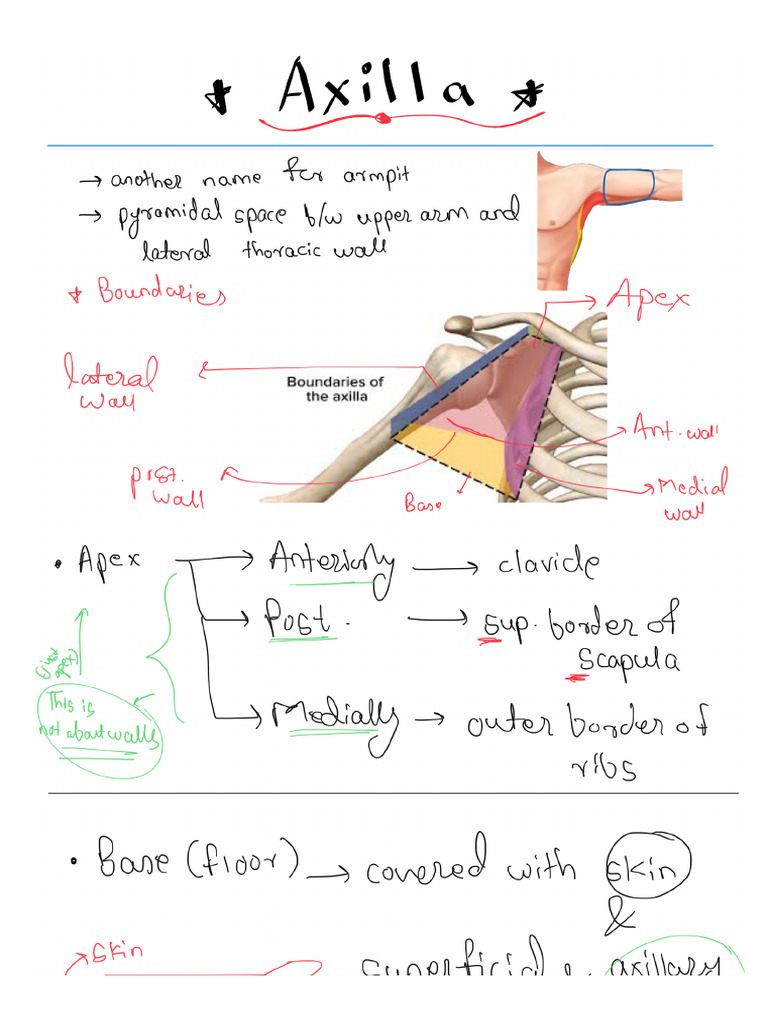 * Axilla *
→ another name for armpit
→ pyramidal space b/w upper arm and
lateral thoracic wall
* Boundaries
Apex
lateral
wall
Boundaries of
the axilla
Ant. wall
post.
wall
Base
Medial
wall
• Apex → Anteriorly → clavicle
→ Post. → sup. border of
scapula
→ Medially → outer border of
ribs
(just
apex)
This is
not about walls
• Base (floor) → covered with skin
&
skin
superficial & axillary